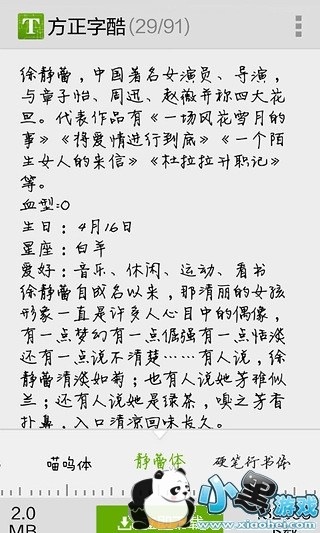 方正字酷(29/91)
徐静蕾，中国著名女演员、导演，
与章子怡、周迅、赵薇并称四大花
旦。代表作品有《一场风花雪月的
事》《将爱情进行到底》《一个陌
生女人的来信》《杜拉拉升职记》
等。
血型:O
生日：4月16日
星座：白羊
爱好：音乐、休闲、运动、看书
徐静蕾自成名以来，那清丽的女孩
形象一直是许多人心目中的偶像，
有一点梦幻有一点倔强有一点恬淡
还有一点说不清楚……有人说，徐
静蕾清淡如菊；也有人说她芳雅似
兰；还有人说她是绿茶，嗅之芳香
扑鼻，入口清凉回味长久。
喵呜体 静蕾体 硬笔行书体
2.0
MB
小黑游戏
www.xiaohei.com